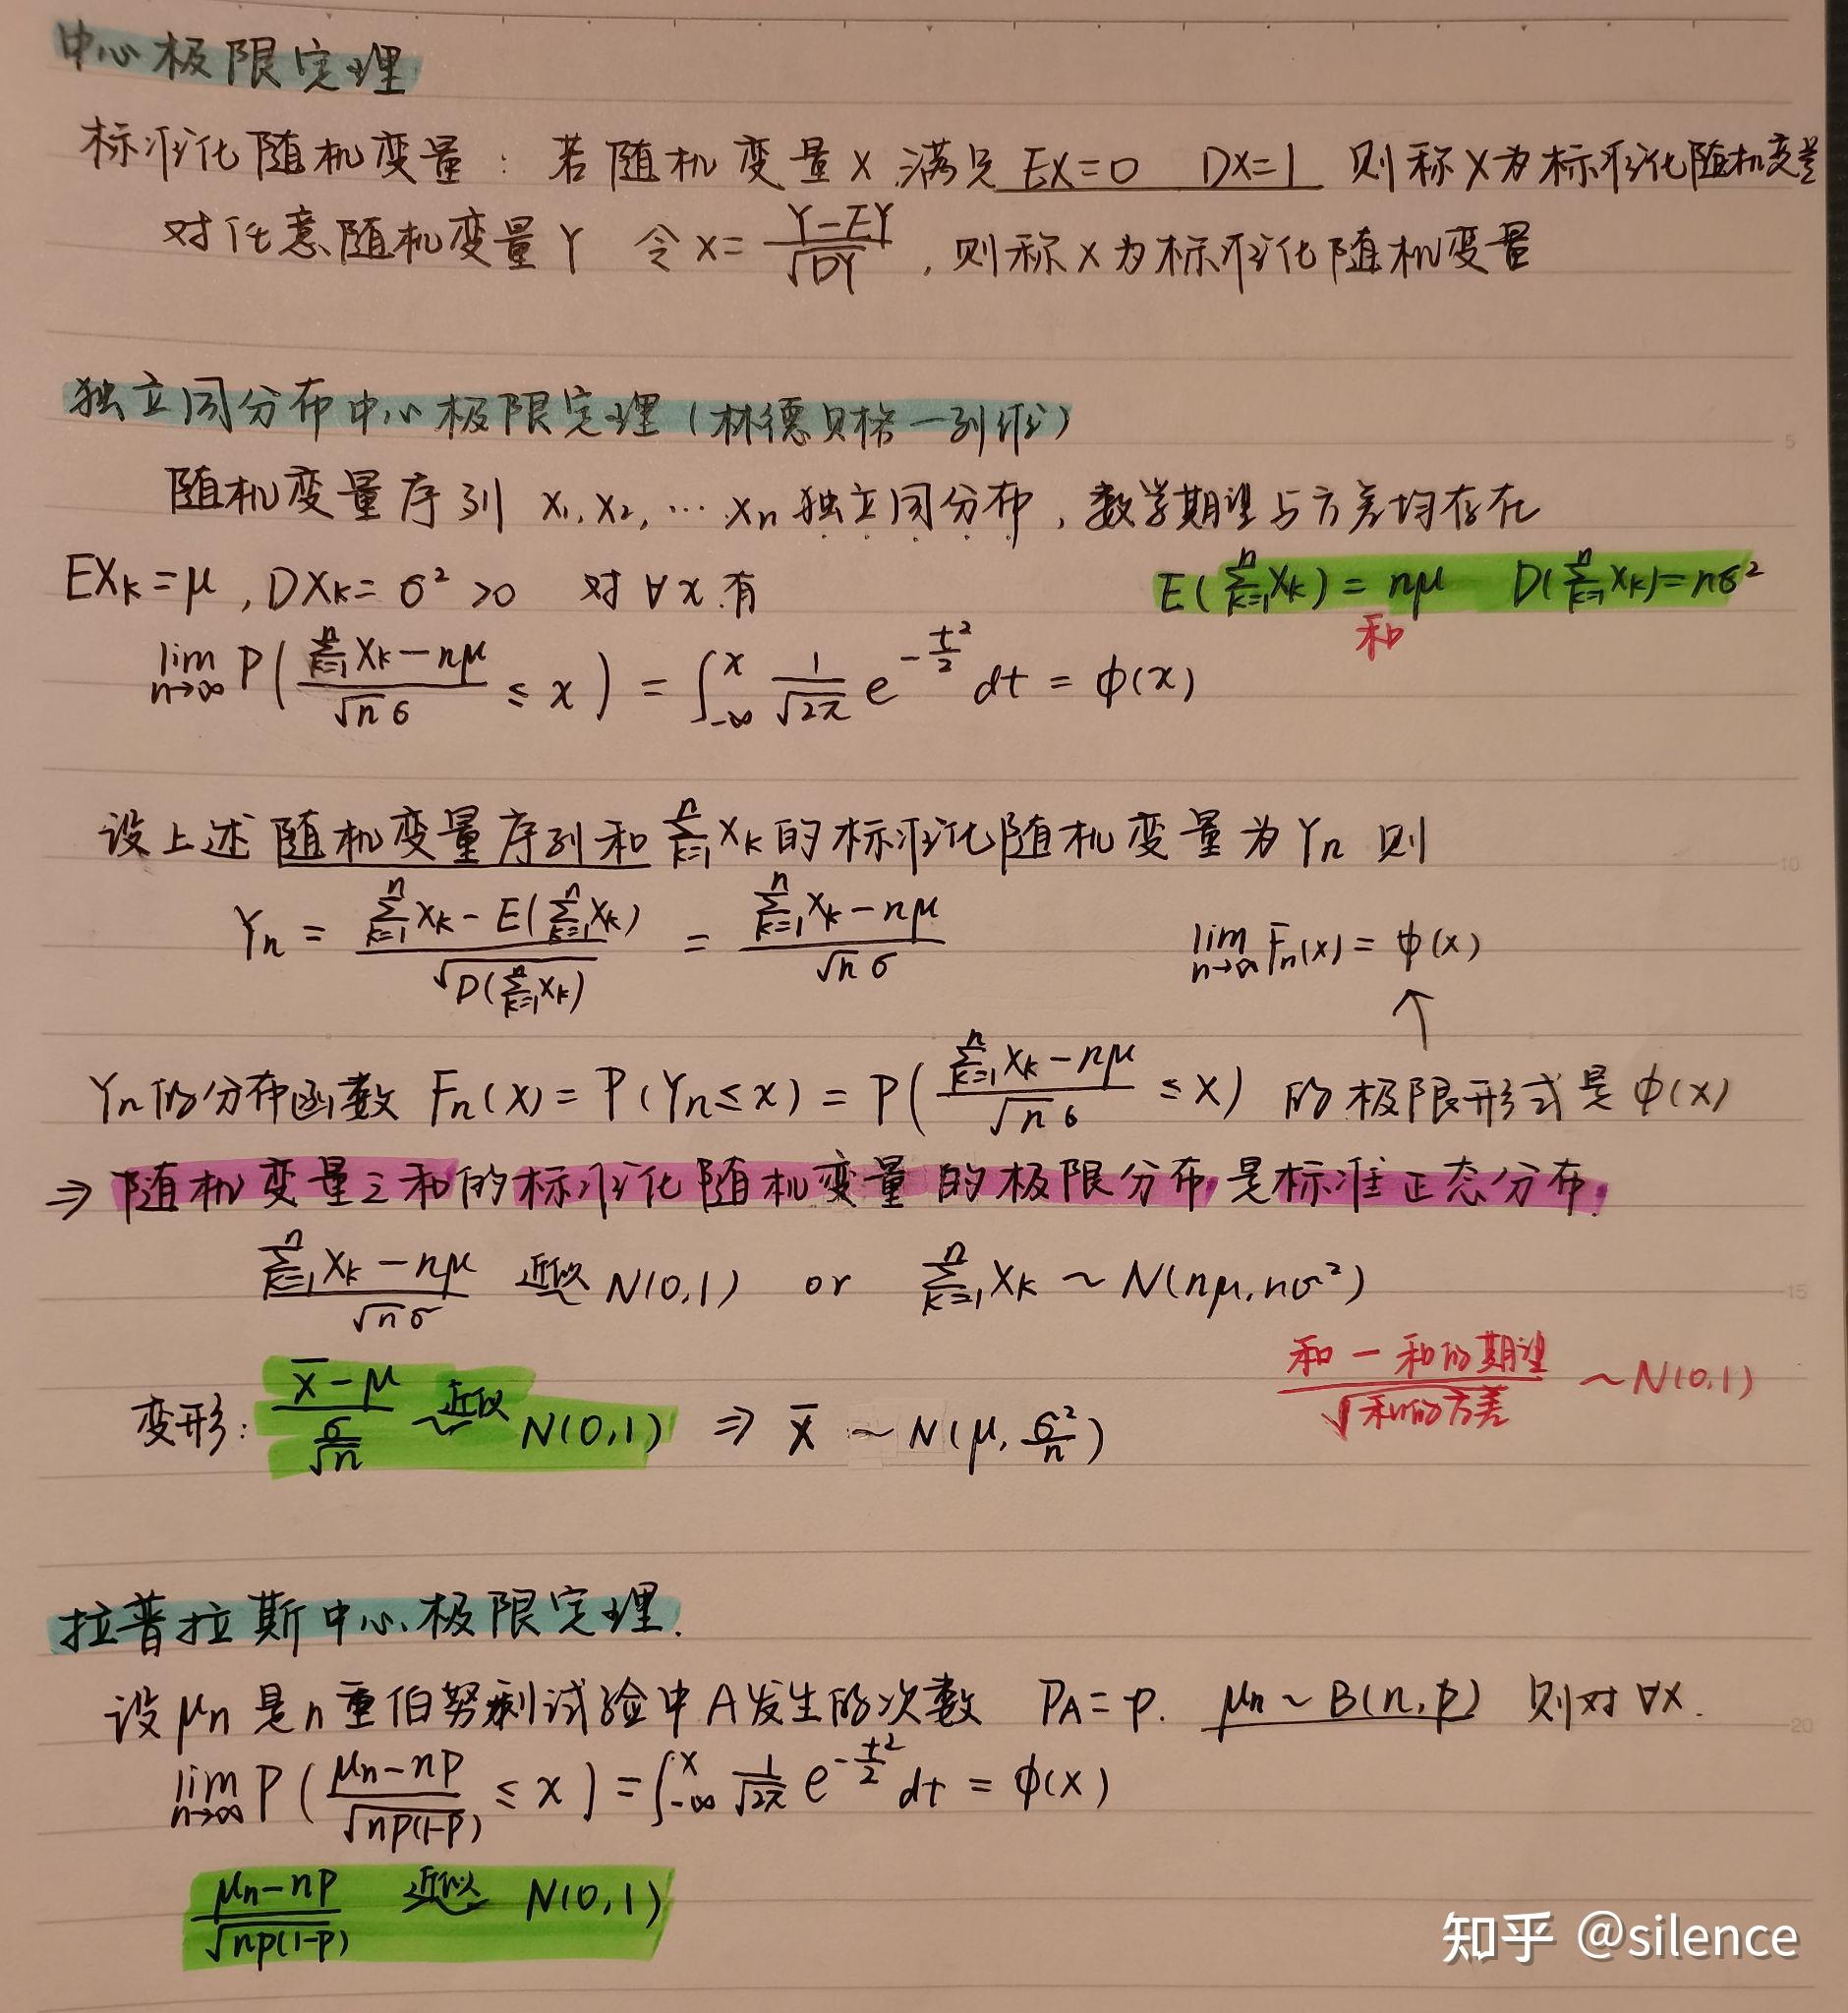 中心极限定理
标准化随机变量：若随机变量X满足 EX=0 DX=1 则称X为标准化随机变量
对任意随机变量Y 令X=(Y-EY)/√DY，则称X为标准化随机变量
独立同分布中心极限定理（林德贝格一列维）
随机变量序列 X₁,X₂,…Xn 独立同分布，数学期望与方差均存在
EXk=μ，DXk=σ²>0 对∀x有
E(∑_{k=1}^{n}Xk)=nμ D(∑_{k=1}^{n}Xk)=nσ²
和
lim_{n→∞} P((∑_{k=1}^{n}Xk-nμ)/(√nσ) ≤ x) = ∫_{-∞}^{x} 1/√(2π) e^{-t²/2} dt = φ(x)
设上述随机变量序列和∑_{k=1}^{n}Xk的标准化随机变量为Yn 则
Yn = (∑_{k=1}^{n}Xk-E(∑_{k=1}^{n}Xk))/√D(∑_{k=1}^{n}Xk) = (∑_{k=1}^{n}Xk-nμ)/(√nσ)
lim_{n→∞} Fn(x) = φ(x)
↑
Yn的分布函数 Fn(x)=P(Yn≤x)=P((∑_{k=1}^{n}Xk-nμ)/(√nσ) ≤x) 的极限形式是φ(x)
⇒ 随机变量之和的标准化随机变量的极限分布是标准正态分布.
(∑_{k=1}^{n}Xk-nμ)/(√nσ) 近似~ N(0,1) or ∑_{k=1}^{n}Xk ~ N(nμ,nσ²)
(和-和的期望)/√和的方差 ~N(0,1)
变形: (X̄-μ)/(σ/√n) 近似~ N(0,1) ⇒ X̄ ~ N(μ,σ²/n)
拉普拉斯中心极限定理.
设μn是n重伯努利试验中A发生的次数 PA=p. μn~B(n,p) 则对∀x.
lim_{n→∞} P((μn-np)/√(np(1-p)) ≤ x) = ∫_{-∞}^{x} 1/√(2π) e^{-t²/2} dt = φ(x)
(μn-np)/√(np(1-p)) 近似~ N(0,1)
知乎 @silence
5
10
15
20